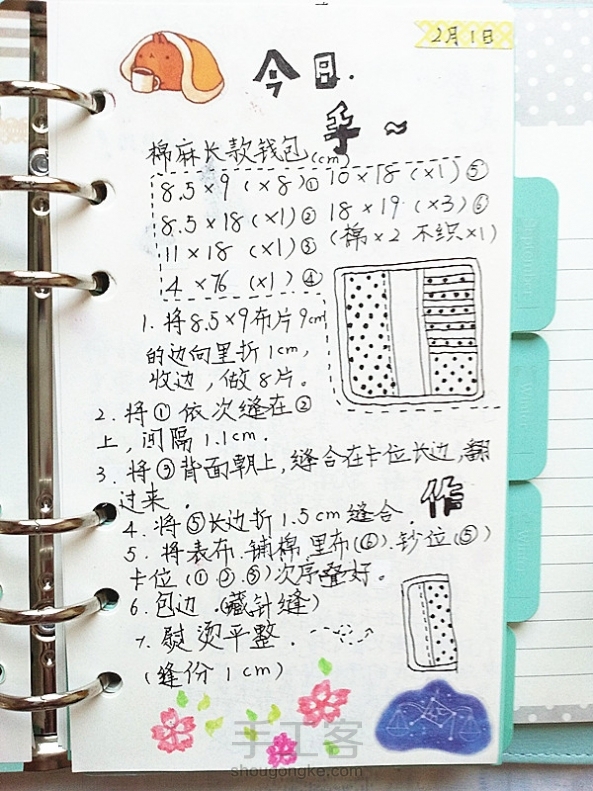 2月1日
今日.
手~
棉麻长款钱包(cm)
8.5×9(×8)① 10×18(×1)⑤
8.5×18(×1)② 18×19(×3)⑥
11×18(×1)③ (棉×2 不织×1)
4×76(×1)④
1.将8.5×9布片9cm
的边向里折1cm,
收边,做8片。
2.将①依次缝在②
上,间隔1.1cm.
3.将③背面朝上,缝合在卡位长边,翻
过来.
作
4.将⑤长边折1.5cm缝合.
5.将表布.铺棉.里布(⑥).钞位(⑤)
卡位(①②③)次序叠好。
6.包边.(藏针缝)
7.熨烫平整.
(缝份1cm)
手工客
shougongke.com
September
Winter
Winter